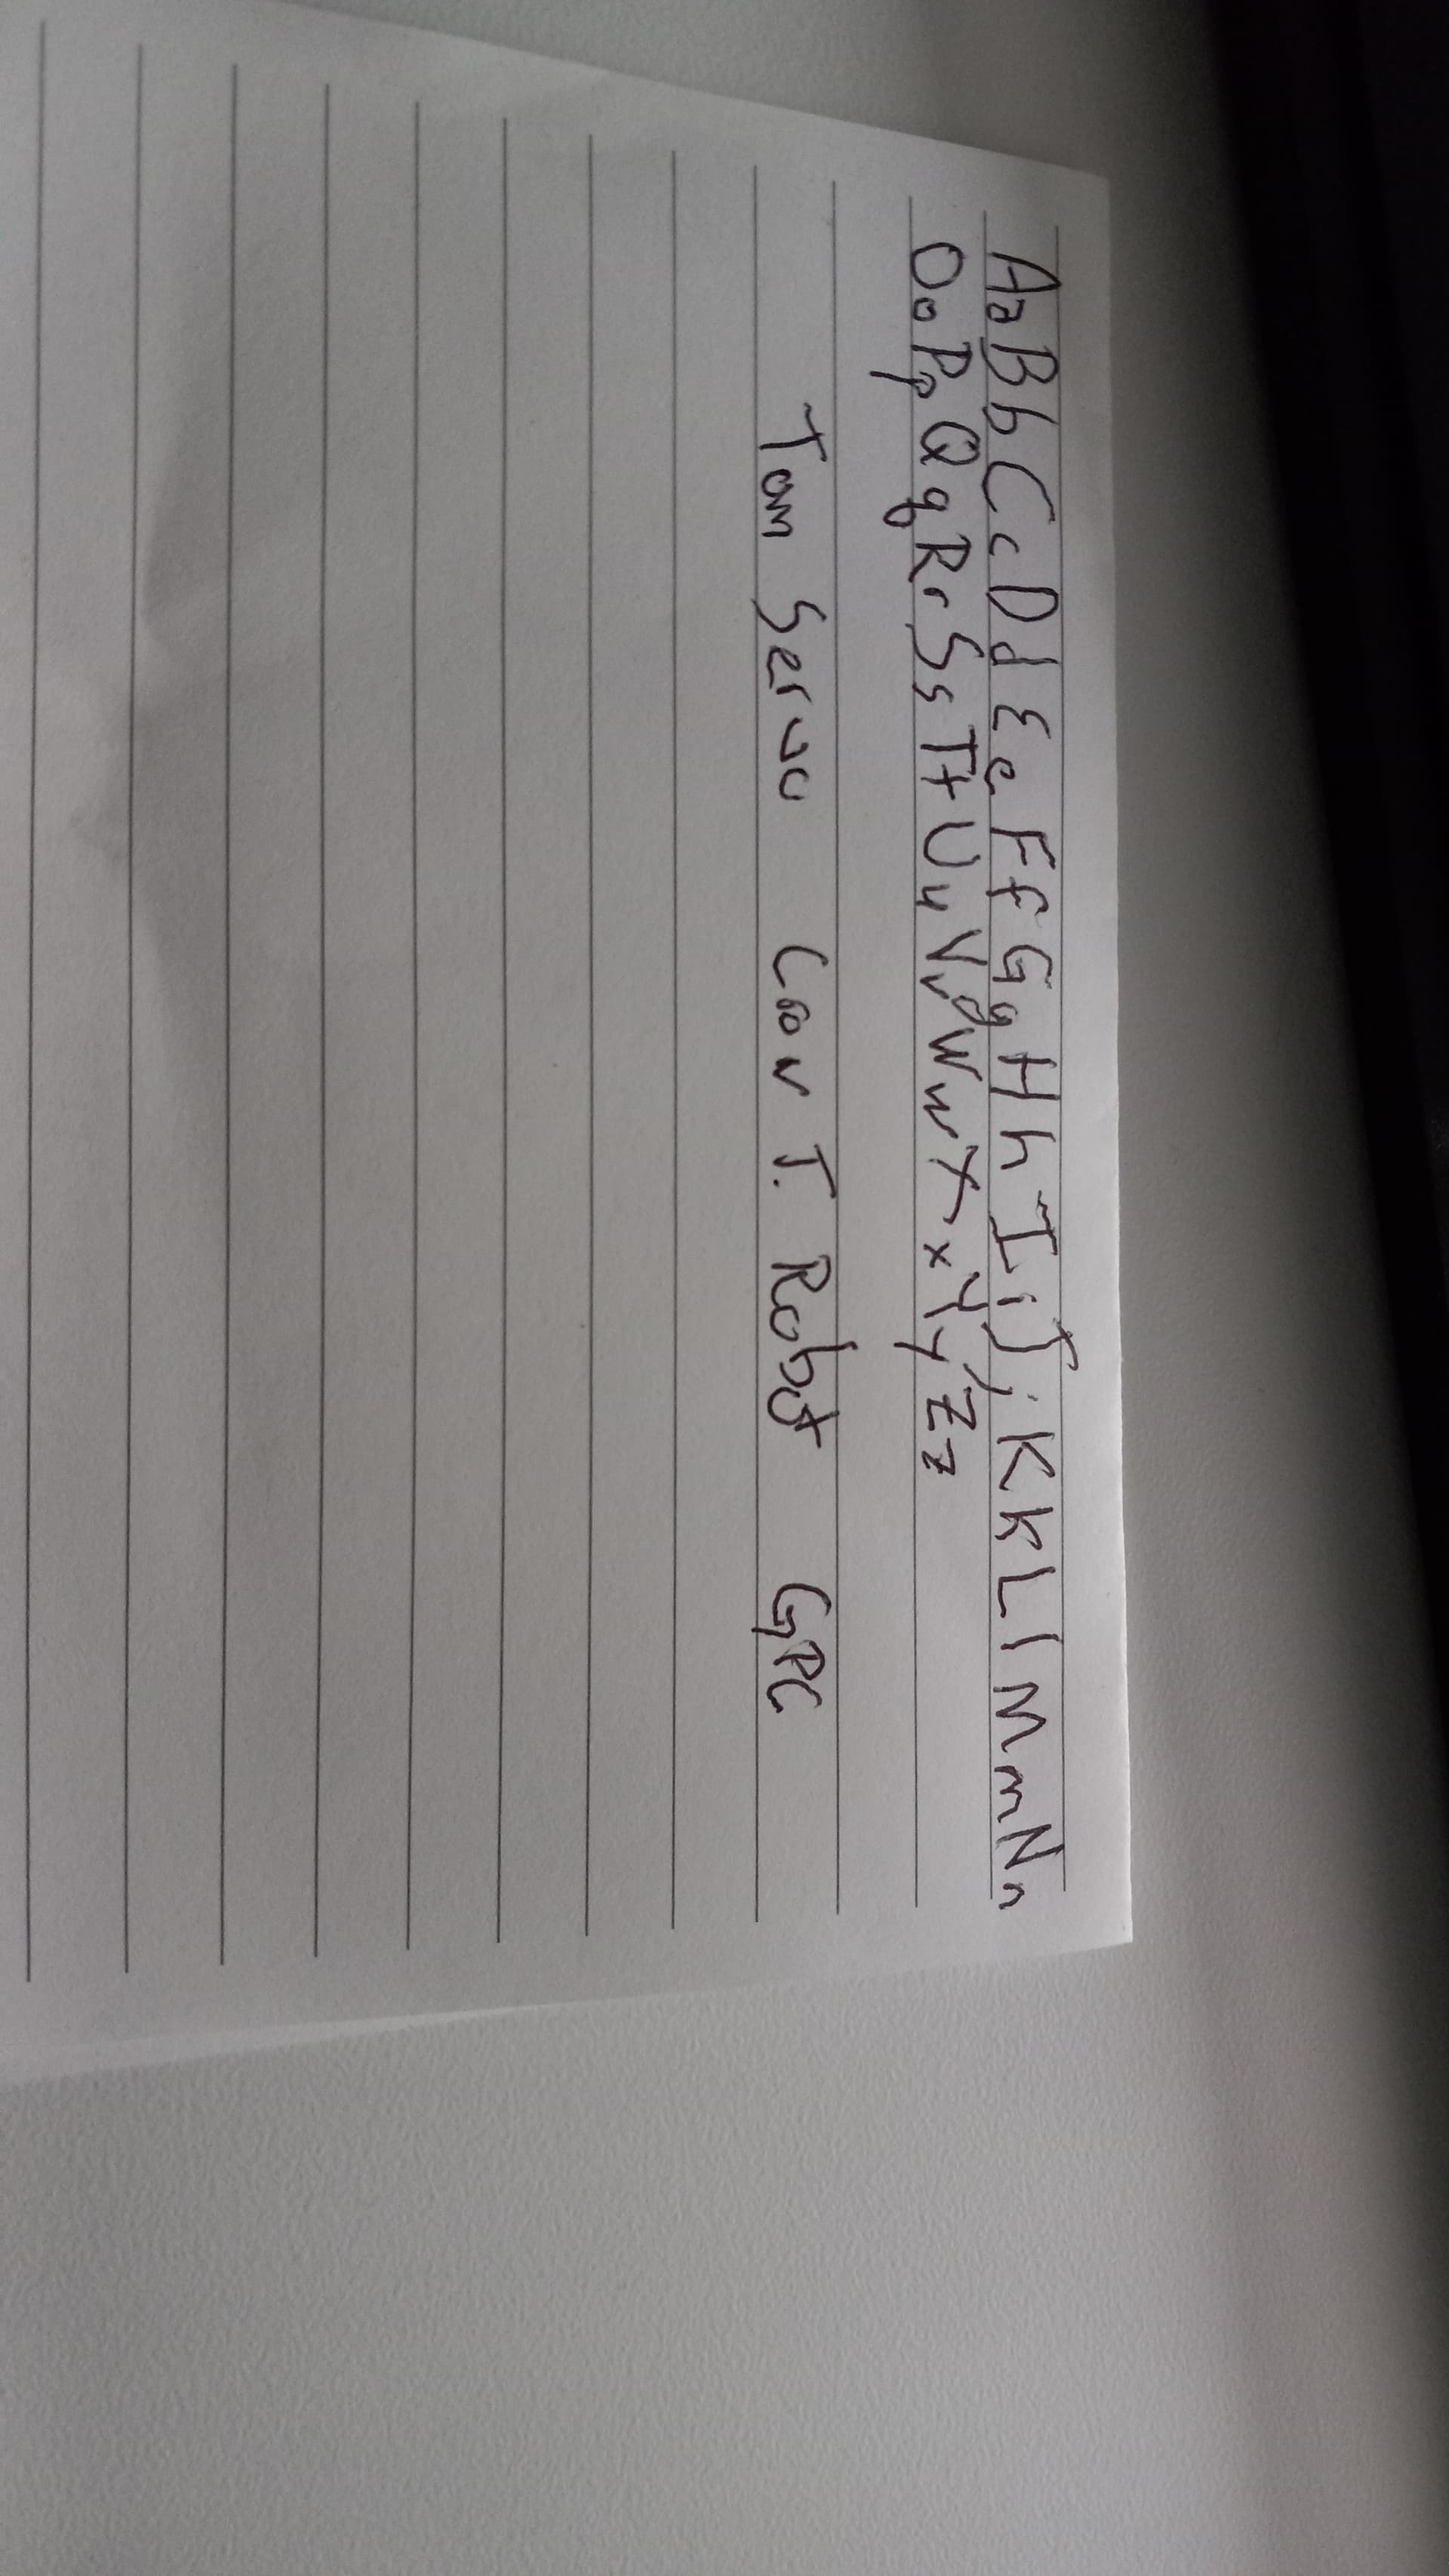 AaBbCcDdEeFfGgHhIiJjKkLlMmNn
OoPpQqRrSsTtUuVvWwXxYyZz
Tom Servo Crow T. Robot GPC